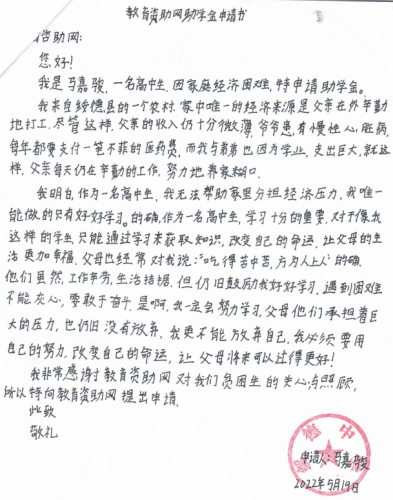 教育资助网助学金申请书
资助网:
您好!
我是马嘉骏,一名高中生,因家庭经济困难,特申请助学金。
我来自绥德县的一个农村,家中唯一的经济来源是父亲在外辛勤
地打工,尽管这样,父亲的收入仍十分微薄,爷爷患有慢性心脏病,
每年都要支付一笔不菲的医药费,而我与弟弟也因为学业,支出巨大,就这
样,父亲每天仍在辛勤的工作,努力地养家糊口.
我明白,作为一名高中生,我无法帮助家里分担经济压力,我唯一
能做的只有好好学习。的确,作为一名高中生,学习十分的重要,对于像我
这样的学生,只能通过学习来获取知识,改变自己的命运,让父母的生
活更加幸福,父母也经常对我说:"吃得苦中苦,方为人上人"的确,
他们虽然,工作辛劳,生活拮据,但仍旧鼓励我好好学习,遇到困难
不能灰心,要敢于奋斗,是啊,我一定会努力学习,父母他们承担着巨
大的压力,也仍旧没有放弃,我更不能放弃自己,我必须要用
自己的努力,改变自己的命运,让父母将来可以过得更好!
我非常感谢教育资助网对我们贫困生的关心与照顾,
所以特向教育资助网提出申请,
此致
敬礼
申请人:马嘉骏
2022年5月19日